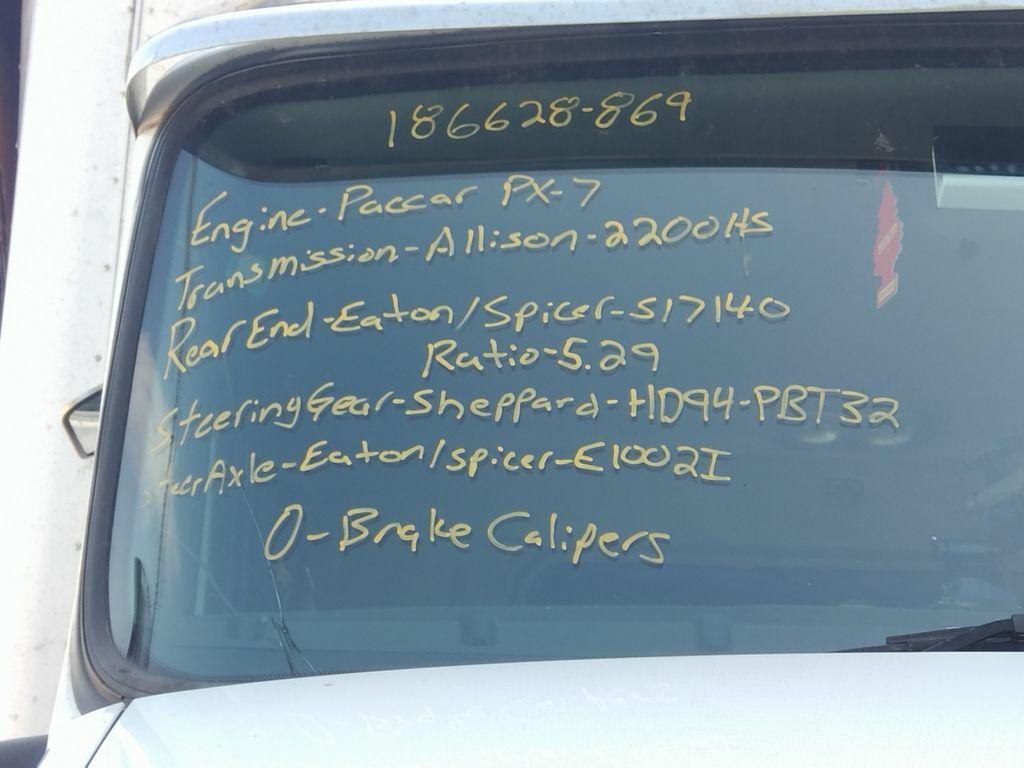 186628-869
Engine-Paccar PX-7
Transmission-Allison-2200HS
Rear End-Eaton/Spicer-S17140
Ratio-5.29
Steering Gear-Sheppard-HD94-PBT32
Steer Axle-Eaton/Spicer-E1002I
0-Brake Calipers